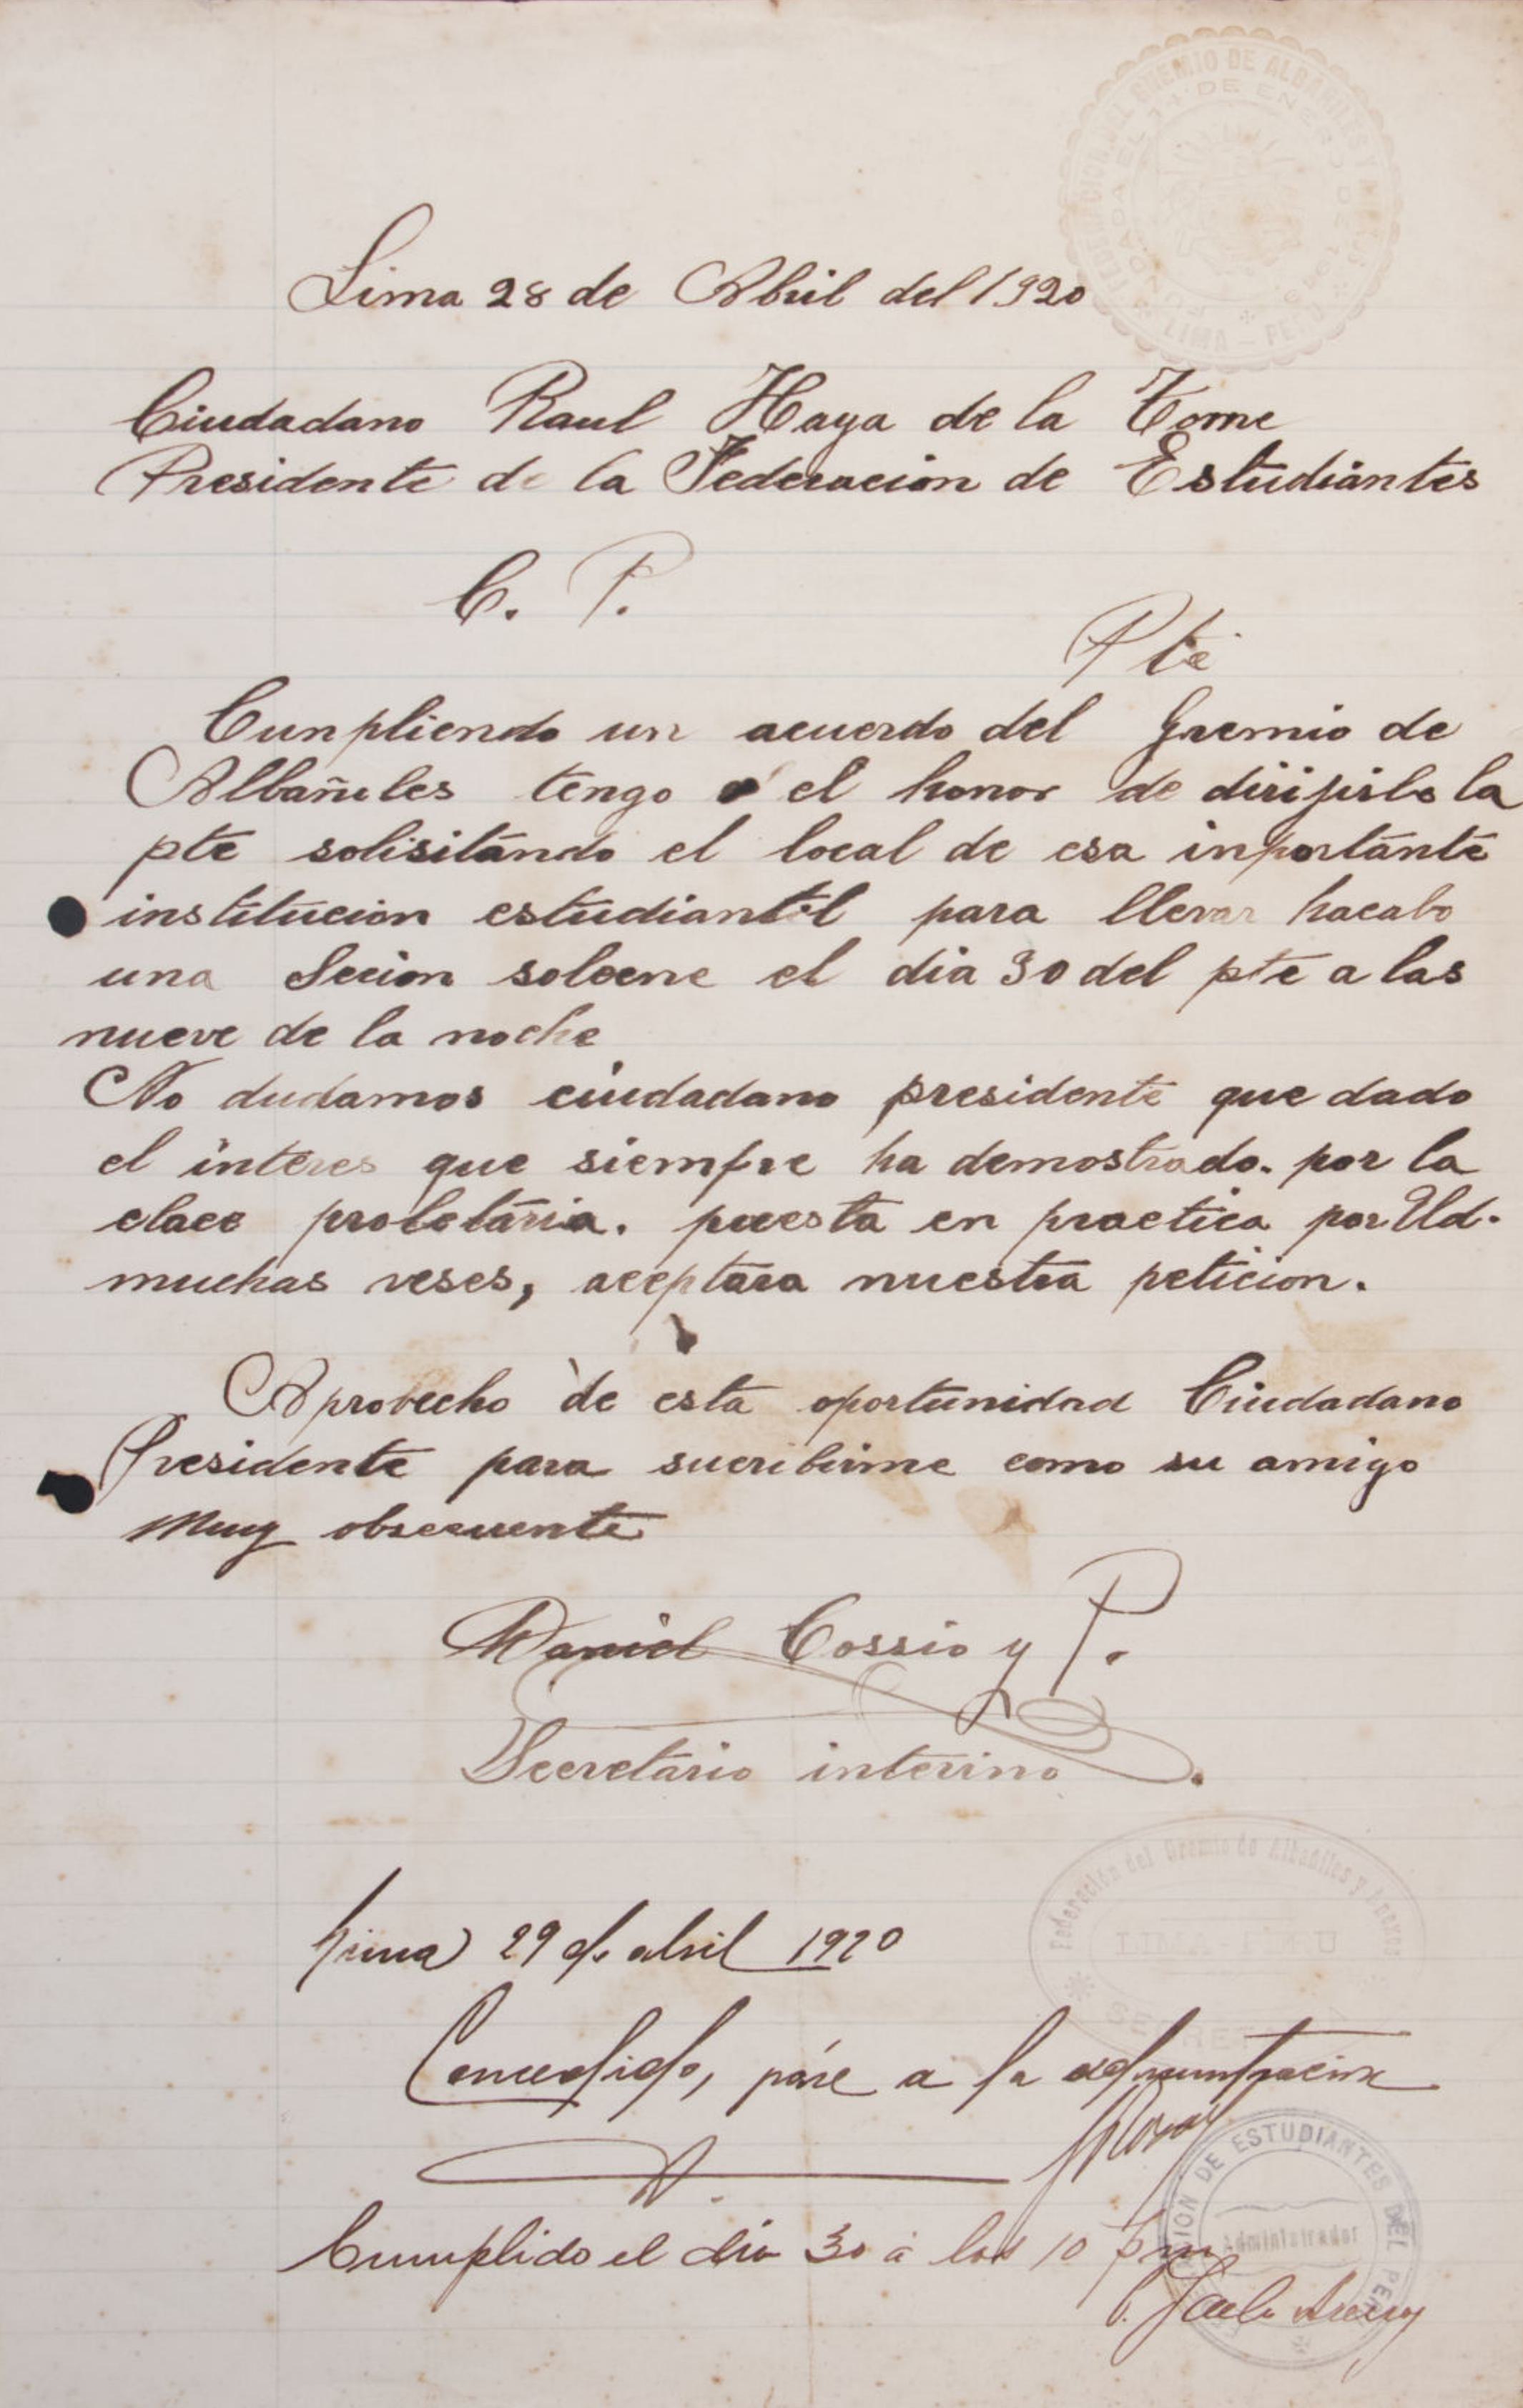 FEDERACION DEL GREMIO DE ALBAÑILES Y ANEXOS
FUNDADA EL DE ENERO DE 1919
LIMA - PERU
Lima 28 de Abril del 1920
Ciudadano Raul Haya de la Torre
Presidente de la Federacion de Estudiantes
C. P.
Pte
Cunpliendo un acuerdo del Gremio de
Albañiles tengo el honor de dirijirle la
pte solisitando el local de esa inportante
institucion estudiantil para llevar hacabo
una Secion soleene el dia 30 del pte a las
nueve de la noche
No dudamos ciudadano presidente que dado
el interes que siempre ha demostrado. por la
clace proletaria. puesta en practica por Ud.
muchas veses, aceptara nuestra peticion.
Aprobecho de esta oportunidad Ciudadano
Presidente para sucribirme como su amigo
muy obsecuente
Daniel Cossio y P.
Secretario interino
Federación del Gremio de Albañiles y Anexos
LIMA - PERU
SECRETARIA
Lima 29 de abril 1920
Concedido, páse a la administracion
FEDERACION DE ESTUDIANTES DEL PERU
Administrador
Cumplido el dia 30 á las 10 pm